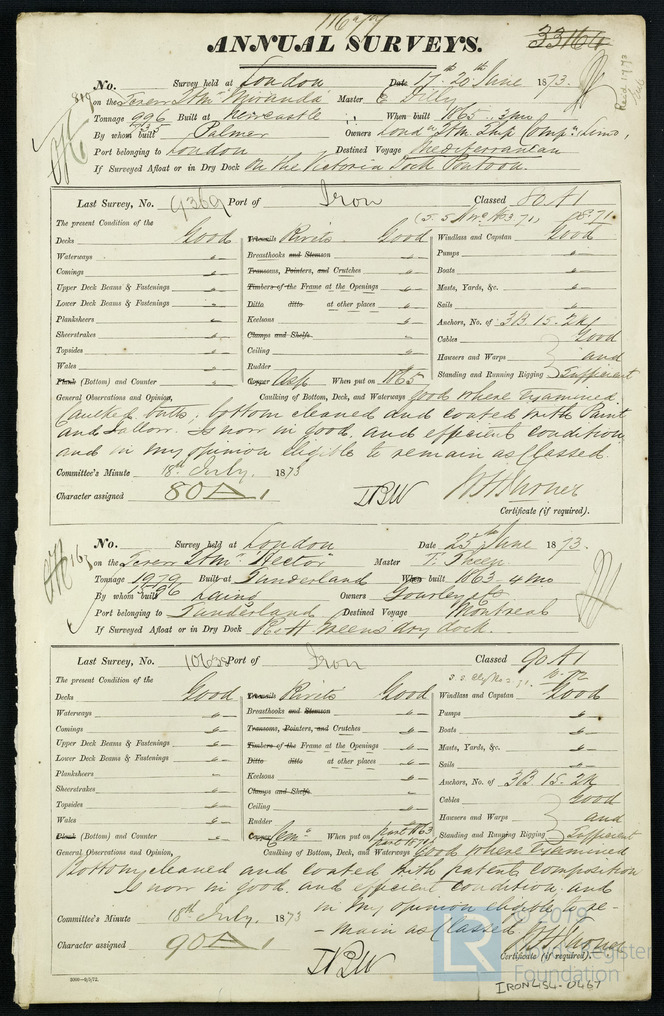 ANNUAL SURVEYS.
33164
No. Survey held at London Date 17th 20th June 1873.
on the Screw Stmr "Miranda" Master E Dilly
Tonnage 996 Built at Newcastle When built 1865 .. 3 mo
By whom built Palmer Owners
Port belonging to London Destined Voyage Mediterranean
If Surveyed Afloat or in Dry Dock On the Victoria Dock Pontoon.
Last Survey, No. 9369 Port of Iron Classed 80 A1
The present Condition of the
Decks Good Treenails Rivets Good Windlass and Capstan Good
Waterways " Breasthooks and Stemson " Pumps "
Comings " Transoms, Pointers, and Crutches " Boats "
Upper Deck Beams & Fastenings " Timbers of the Frame at the Openings " Masts, Yards, &c. "
Lower Deck Beams & Fastenings " Ditto ditto at other places " Sails "
Planksheers " Keelsons " Anchors, No. of 3B. 1S. 2K
Sheerstrakes " Clamps and Shelfs Cables Good
Topsides " Ceiling " Hawsers and Warps and
Wales " Rudder " Standing and Running Rigging Sufficient
Plank (Bottom) and Counter " Copper When put on 1865
General Observations and Opinion, Caulking of Bottom, Deck, and Waterways good where examined.
Caulked butts, bottom cleaned and coated with Paint
and Tallow. Is now in good and efficient condition
and in my opinion eligible to remain as Classed.
Committee's Minute 18th July, 1873
Character assigned 80 A 1
Certificate (if required).
No. Survey held at London Date 25th June 1873.
on the Screw Stmr "Hector" Master
Tonnage 1979 Built at Sunderland When built 1863 - 4 mo
By whom built Laing Owners Gourley &Co
Port belonging to Sunderland Destined Voyage Montreal
If Surveyed Afloat or in Dry Dock R & H Greens dry dock.
Last Survey, No. 10638 Port of Iron Classed 90 A1
The present Condition of the
Decks Good Treenails Rivets Good Windlass and Capstan Good
Waterways " Breasthooks and Stemson " Pumps "
Comings " Transoms, Pointers, and Crutches " Boats "
Upper Deck Beams & Fastenings " Timbers of the Frame at the Openings " Masts, Yards, &c. "
Lower Deck Beams & Fastenings " Ditto ditto at other places " Sails "
Planksheers " Keelsons " Anchors, No. of 3B. 1S. 2K
Sheerstrakes " Clamps and Shelfs Cables Good
Topsides " Ceiling " Hawsers and Warps and
Wales " Rudder " Standing and Running Rigging Sufficient
Plank (Bottom) and Counter " Copper Cemt When put on part 1863
General Observations and Opinion, Caulking of Bottom, Deck, and Waterways Good where examined
Bottom cleaned and coated with patent composition
Is now in good and efficient condition, and
in my opinion eligible to re-
-main as Classed
Committee's Minute 18th July, 1873
Character assigned 90 A 1
Certificate (if required).
© 2019
Lloyd's Register
Foundation
LR
IRON454-0467